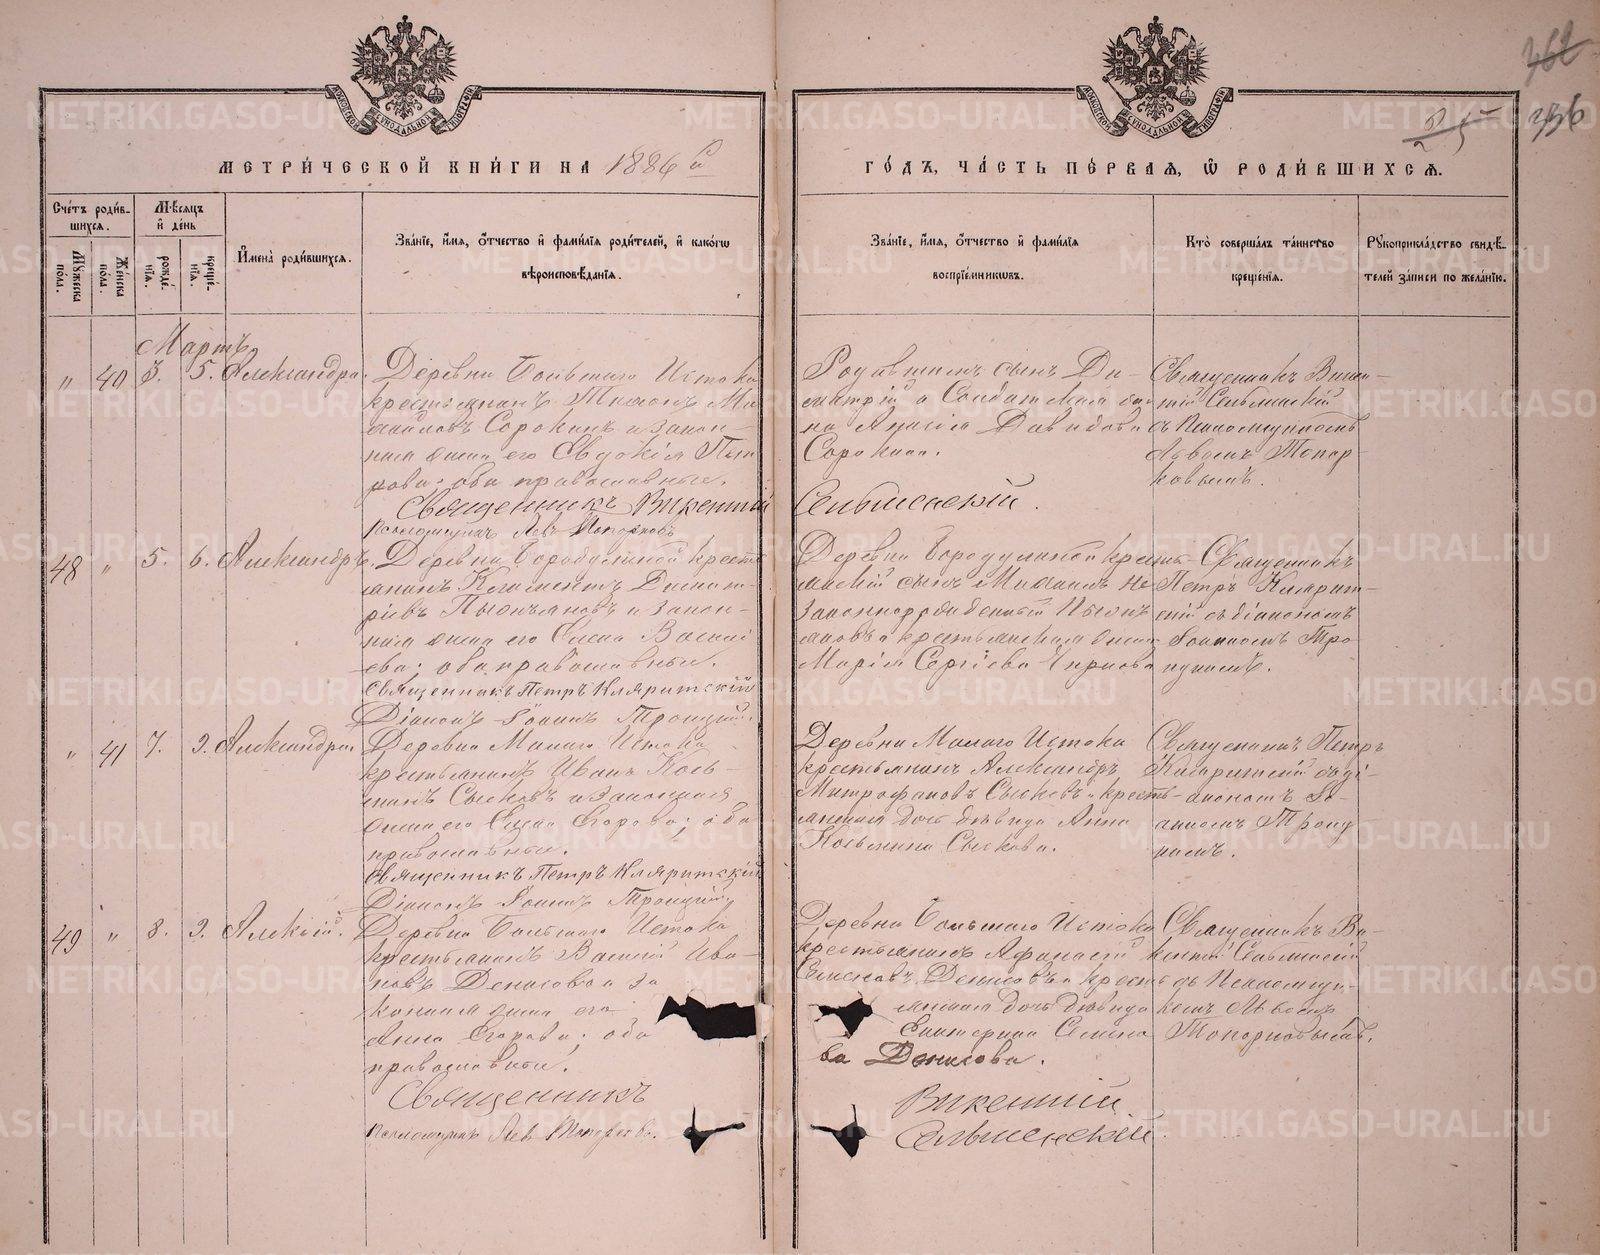 362
356
МЕТРИ́ЧЕСКОЙ КНИ́ГИ НА 1886 й
ГО́ДЪ, ЧА́СТЬ ПЕ́РВАЯ, Ѡ РОДИ́ВШИХСЯ.
Сче́тъ роди́в-
шихся.
Му́жеска по́ла.
Же́нска по́ла.
Мѣ́сяцъ и де́нь
рожде́-
нія.
креще́-
нія.
Имена̀ роди́вшихся.
Зва́ніе, и́мя, о́тчество и фами́лія роди́телей, и како́гѡ
вѣроисповѣ́данія.
Зва́ніе, и́мя, о́тчество и фами́лія
воспріе́мникѡвъ.
Кто̀ соверша́лъ та́инство
креще́нія.
Рукоприкла́дство свидѣ́-
телей за́писи по жела́нію.
Мартъ
" 40 3. 5. Александра.
Деревни Большаго Истока
крестьянинъ Ми
хайловъ Сорокинъ и закон-
ная жена его Евдокія Пет
рова; оба православные.
Священникъ Викентій Сельменскій.
Псаломщикъ Левъ Топорковъ
Родителей сынъ Ди-
митрій и Солдатская
Давидова
Сорокина.
Священникъ Викен-
тій Сельменскій
съ Псаломщикомъ
Львомъ Топор-
ковымъ.
48 " 5. 6. Александръ.
Деревни Бородулиной кресть
янинъ Климентъ Димит-
ріевъ и закон-
ная жена его Елена Василі
ева; оба православные.
Священникъ Петръ Кляритскій
Діаконъ Іоаннъ Троицкій.
Деревни Бородулиной кресть-
янскій сынъ Михаилъ не
законнорожденный
и крестьянская жена
Марія Сергіева
Священникъ
Петръ Клярит-
скій съ діакономъ
Іоанномъ Тро
ицкимъ.
" 41 7. 9. Александра.
Деревни Малаго Истока
крестьянинъ Иванъ Козь-
минъ Сысковъ и законная
жена его Елена Егорова; оба
православные.
Священникъ Петръ Кляритскій
Діаконъ Іоаннъ Троицкій
Деревни Малаго Истока
крестьянинъ Александръ
Митрофановъ Сысковъ и кресть-
янская дочь дѣвица Анна
Козьмина Сыскова.
Священникъ Петръ
Кляритскій съ ді-
акономъ Іо-
анномъ Троиц
кимъ.
49 " 8. 9. Алексѣй.
Деревни Большаго Истока
крестьянинъ Василій Ива-
новъ Денисовъ и за
конная жена его
Анна Егорова; оба
православные.
Священникъ Викентій
Сельменскій.
Псаломщикъ Левъ Топорковъ.
Деревни Большаго Истока
крестьянинъ Афанасій
Семеновъ Денисовъ и кресть
янская дочь дѣвица
Екатерина Семено
ва Денисова.
Священникъ Ви-
кентій Сельменскій
съ Псаломщи-
комъ Львомъ
Топорковымъ.
METRIKI.GASO-URAL.RU